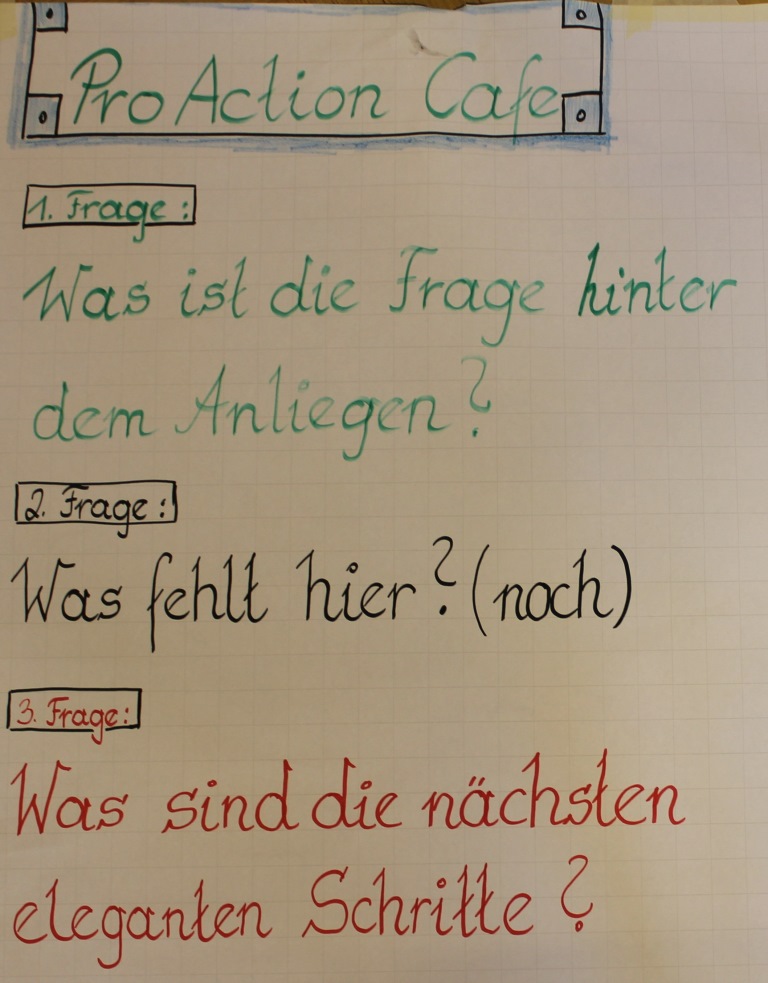 Pro Action Cafe
1. Frage:
Was ist die Frage hinter
dem Anliegen?
2. Frage:
Was fehlt hier? (noch)
3. Frage:
Was sind die nächsten
eleganten Schritte?